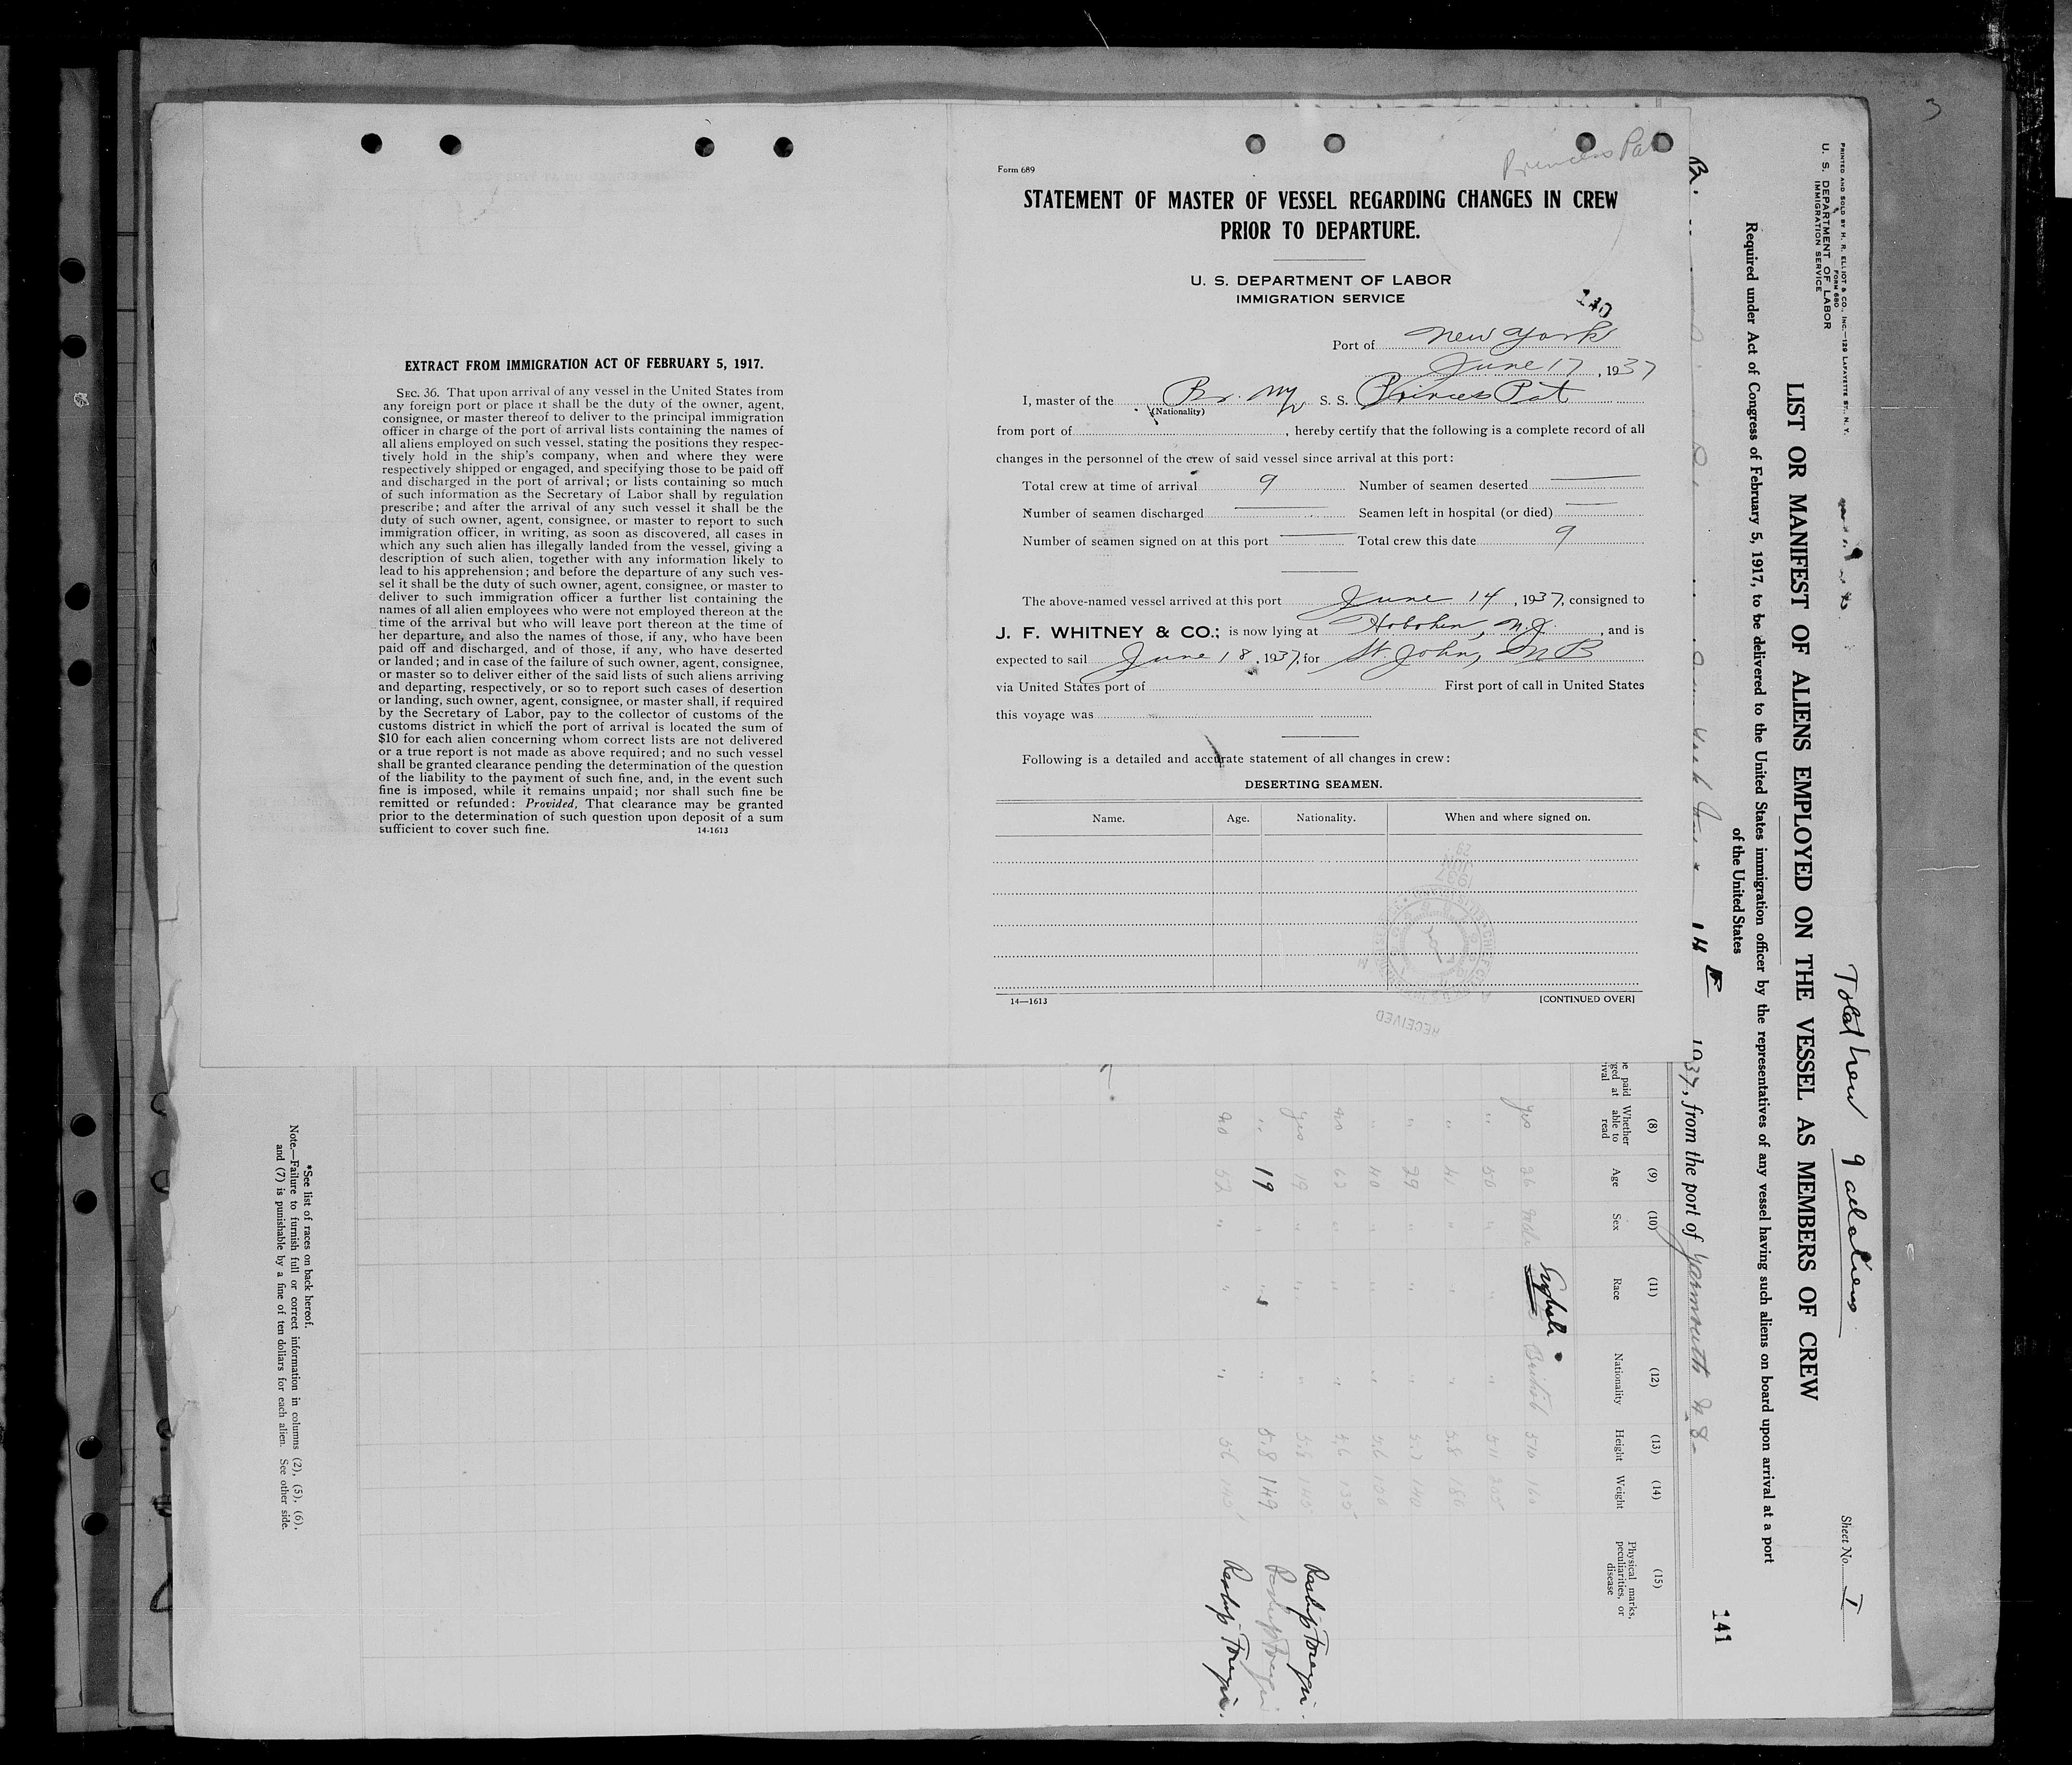 EXTRACT FROM IMMIGRATION ACT OF FEBRUARY 5, 1917.
SEC. 36. That upon arrival of any vessel in the United States from
any foreign port or place it shall be the duty of the owner, agent,
consignee, or master thereof to deliver to the principal immigration
officer in charge of the port of arrival lists containing the names of
all aliens employed on such vessel, stating the positions they respec-
tively hold in the ship's company, when and where they were
respectively shipped or engaged, and specifying those to be paid off
and discharged in the port of arrival; or lists containing so much
of such information as the Secretary of Labor shall by regulation
prescribe; and after the arrival of any such vessel it shall be the
duty of such owner, agent, consignee, or master to report to such
immigration officer, in writing, as soon as discovered, all cases in
which any such alien has illegally landed from the vessel, giving a
description of such alien, together with any information likely to
lead to his apprehension; and before the departure of any such ves-
sel it shall be the duty of such owner, agent, consignee, or master to
deliver to such immigration officer a further list containing the
names of all alien employees who were not employed thereon at the
time of the arrival but who will leave port thereon at the time of
her departure, and also the names of those, if any, who have been
paid off and discharged, and of those, if any, who have deserted
or landed; and in case of the failure of such owner, agent, consignee,
or master so to deliver either of the said lists of such aliens arriving
and departing, respectively, or so to report such cases of desertion
or landing, such owner, agent, consignee, or master shall, if required
by the Secretary of Labor, pay to the collector of customs of the
customs district in which the port of arrival is located the sum of
$10 for each alien concerning whom correct lists are not delivered
or a true report is not made as above required; and no such vessel
shall be granted clearance pending the determination of the question
of the liability to the payment of such fine, and, in the event such
fine is imposed, while it remains unpaid; nor shall such fine be
remitted or refunded: Provided, That clearance may be granted
prior to the determination of such question upon deposit of a sum
sufficient to cover such fine. 14-1613
Princess Pat
Form 689
STATEMENT OF MASTER OF VESSEL REGARDING CHANGES IN CREW
PRIOR TO DEPARTURE.
U. S. DEPARTMENT OF LABOR
IMMIGRATION SERVICE
140
Port of New York
June 17, 1937
I, master of the Br. M/V S. S. Princess Pat
(Nationality)
from port of , hereby certify that the following is a complete record of all
changes in the personnel of the crew of said vessel since arrival at this port:
Total crew at time of arrival 9 Number of seamen deserted
Number of seamen discharged Seamen left in hospital (or died)
Number of seamen signed on at this port Total crew this date 9
The above-named vessel arrived at this port June 14, 1937, consigned to
J. F. WHITNEY & CO.; is now lying at Hoboken, N.J. , and is
expected to sail June 18, 1937, for St. John, N B
via United States port of First port of call in United States
this voyage was
Following is a detailed and accurate statement of all changes in crew:
DESERTING SEAMEN.
Name. Age. Nationality. When and where signed on.
14—1613 [CONTINUED OVER]
RECEIVED
PRINTED AND SOLD BY H. R. ELLIOT & CO., INC.—129 LAFAYETTE ST., N. Y.
FORM 680
U. S. DEPARTMENT OF LABOR
IMMIGRATION SERVICE
Total crew 9 all aliens
Sheet No. I
LIST OR MANIFEST OF ALIENS EMPLOYED ON THE VESSEL AS MEMBERS OF CREW
Required under Act of Congress of February 5, 1917, to be delivered to the United States immigration officer by the representatives of any vessel having such aliens on board upon arrival at a port
of the United States
141
Br. 14 1937, from the port of Yarmouth N S
(8) (9) (10) (11) (12) (13) (14) (15)
Whether able to read Age Sex Race Nationality Height Weight Physical marks, peculiarities, or disease
yes 26 Male English British 5 10 160
" 50 " " " 5 11 205
" 41 " " " 5.8 180
" 29 " " " 5.7 140
" 40 " " " 5.6 150
no 62 " " " 5.6 135
yes 19 " " " 5.8 145
" 19 " " " 5.8 149
no 52 " " " 5 6 140
*See list of races on back hereof.
Note.—Failure to furnish full or correct information in columns (2), (5), (6),
and (7) is punishable by a fine of ten dollars for each alien. See other side.